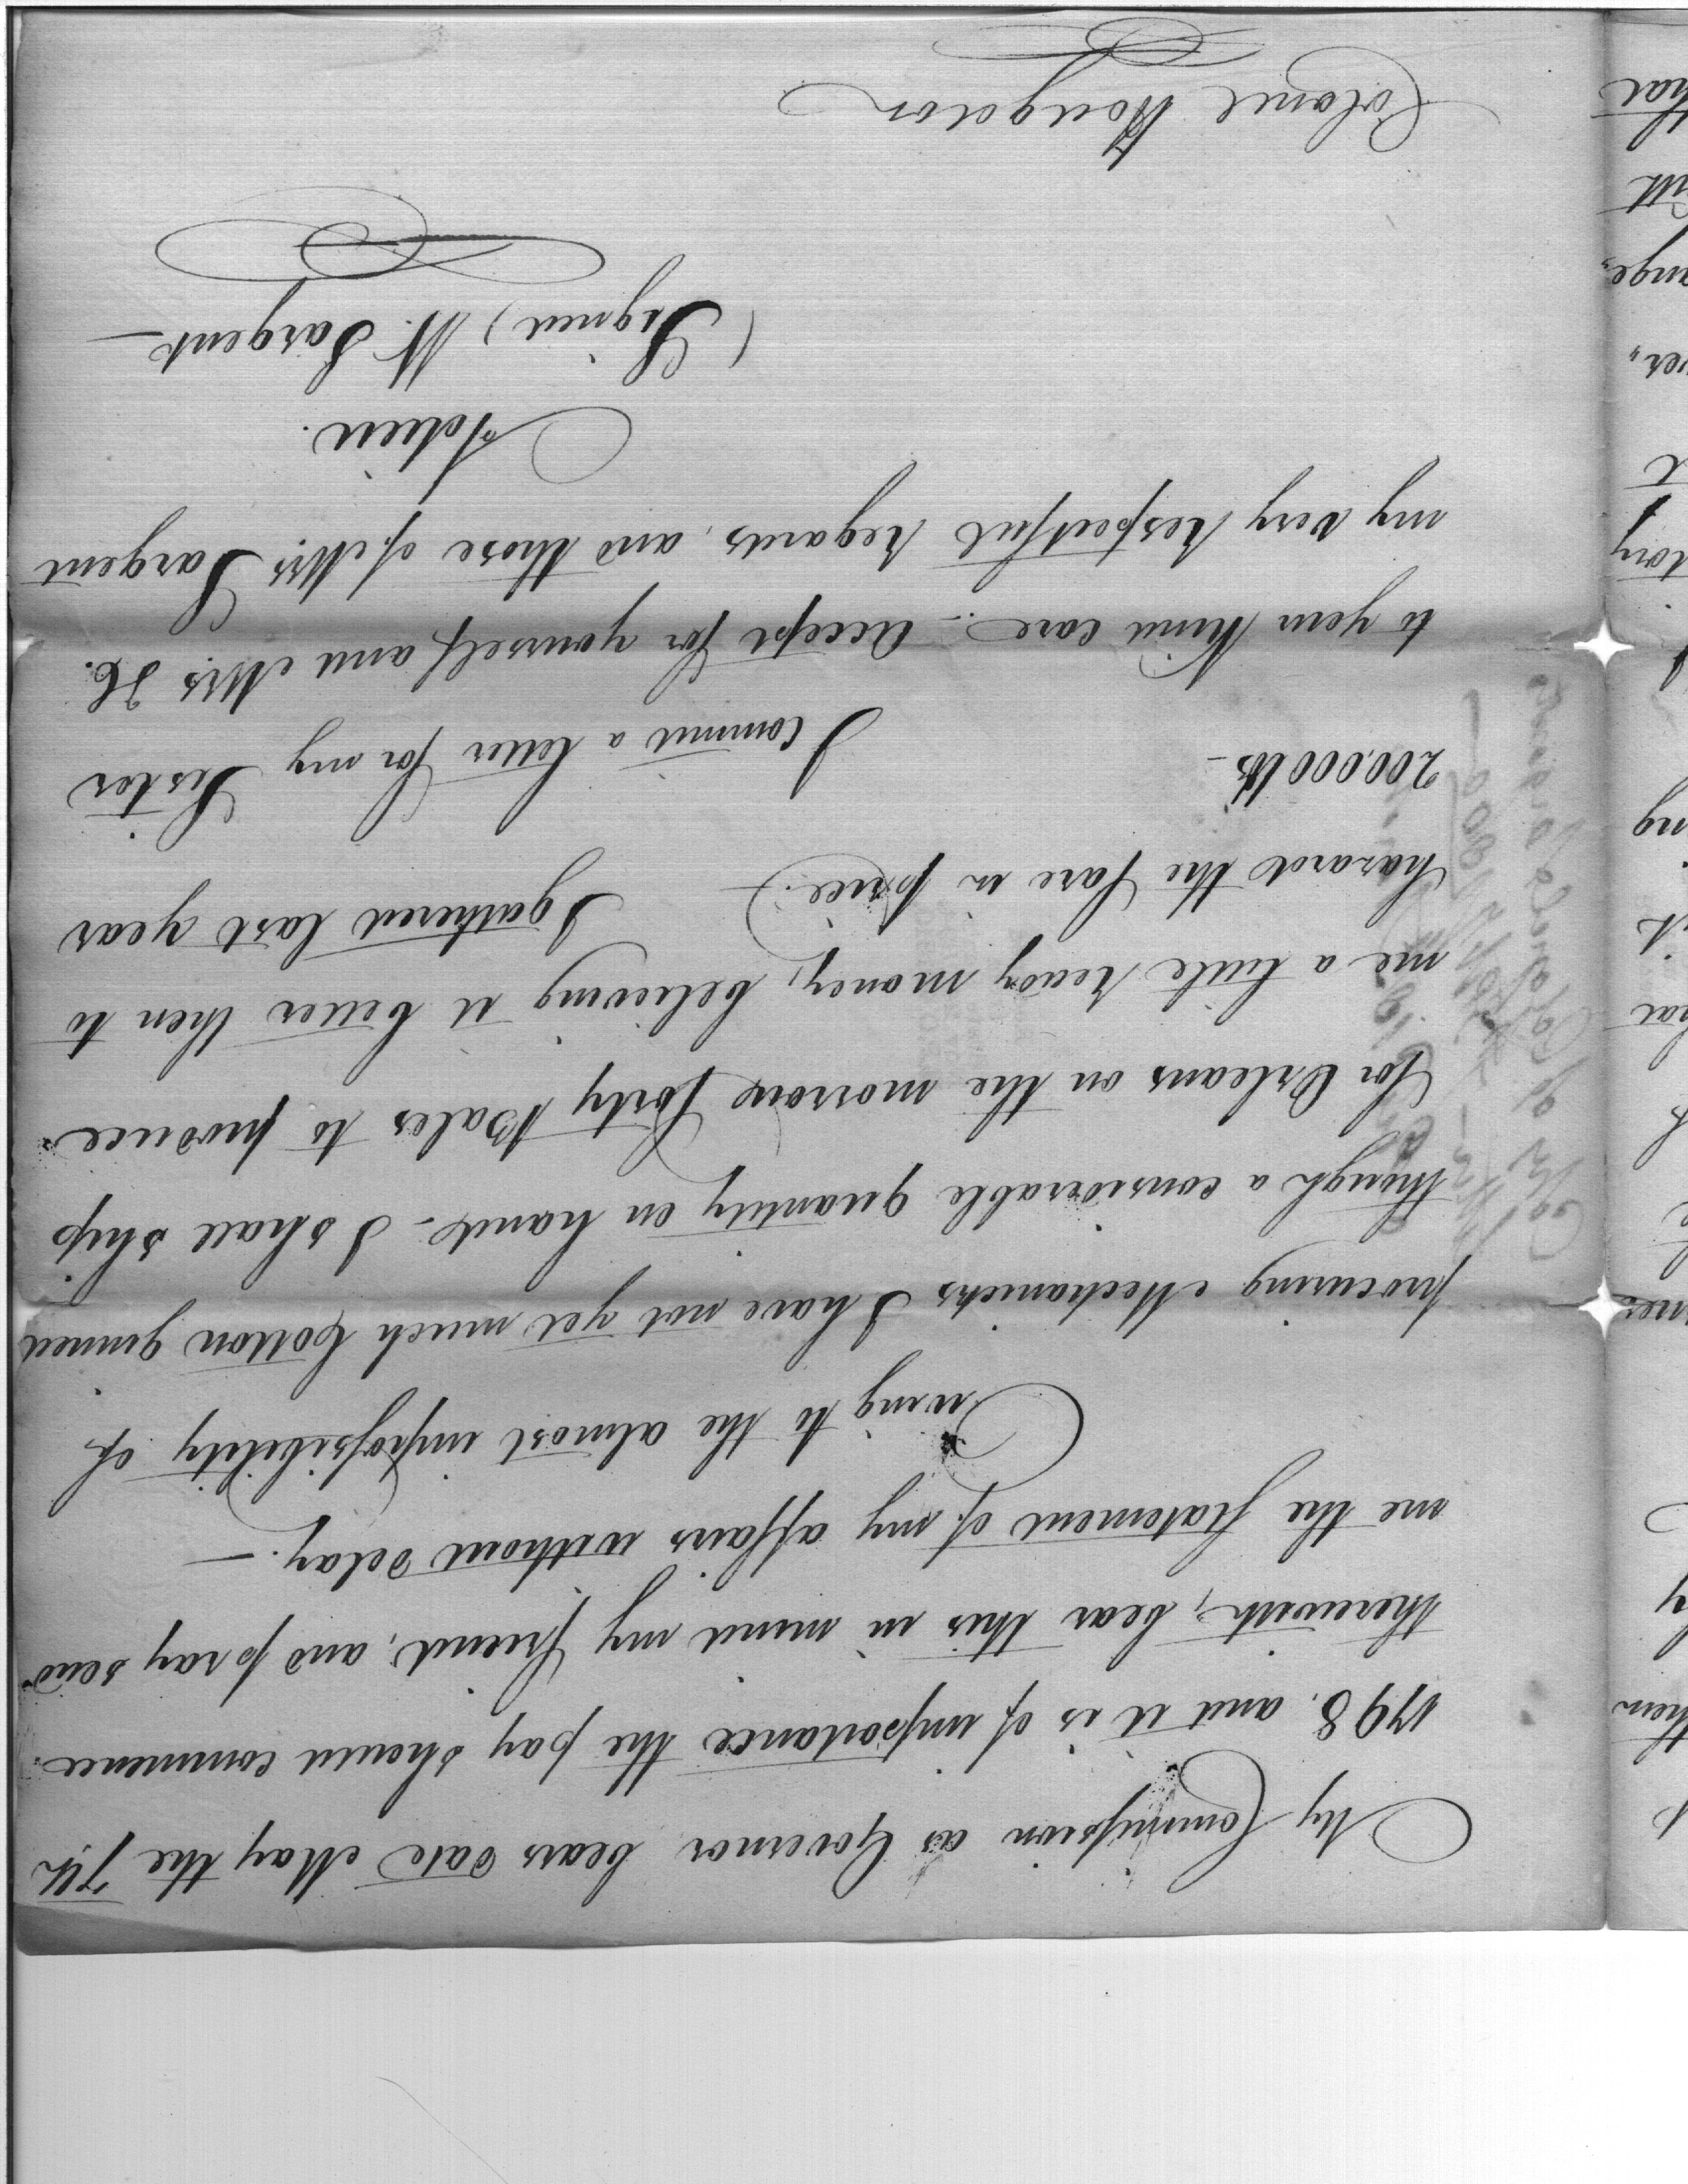 My Commission as Governor bears date May the 7th
1798. and it is of importance the pay should commence
therewith, bear this in mind my friend, and pray send
me the statement of my affairs without delay. —
Owing to the almost impossibility of
procuring Mechanicks I have not yet much Cotton ginned
though a considerable quantity on hand - I shall ship
for Orleans on the morrow forty Bales to produce
me a little ready money, believing it better then to
hazard the fare in price. — I gathered last year
200.000 lbs —
I commit a letter for my Sister
to your kind care - Accept for yourself and Mrs. H.
my very respectful regards, and those of Mrs. Sargent
Adieu.
(Signed) W. Sargent —
Colonel Hodgdon